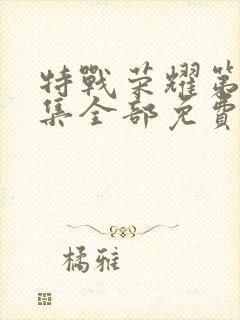 特戰荣耀第
集全部免費
橘雅